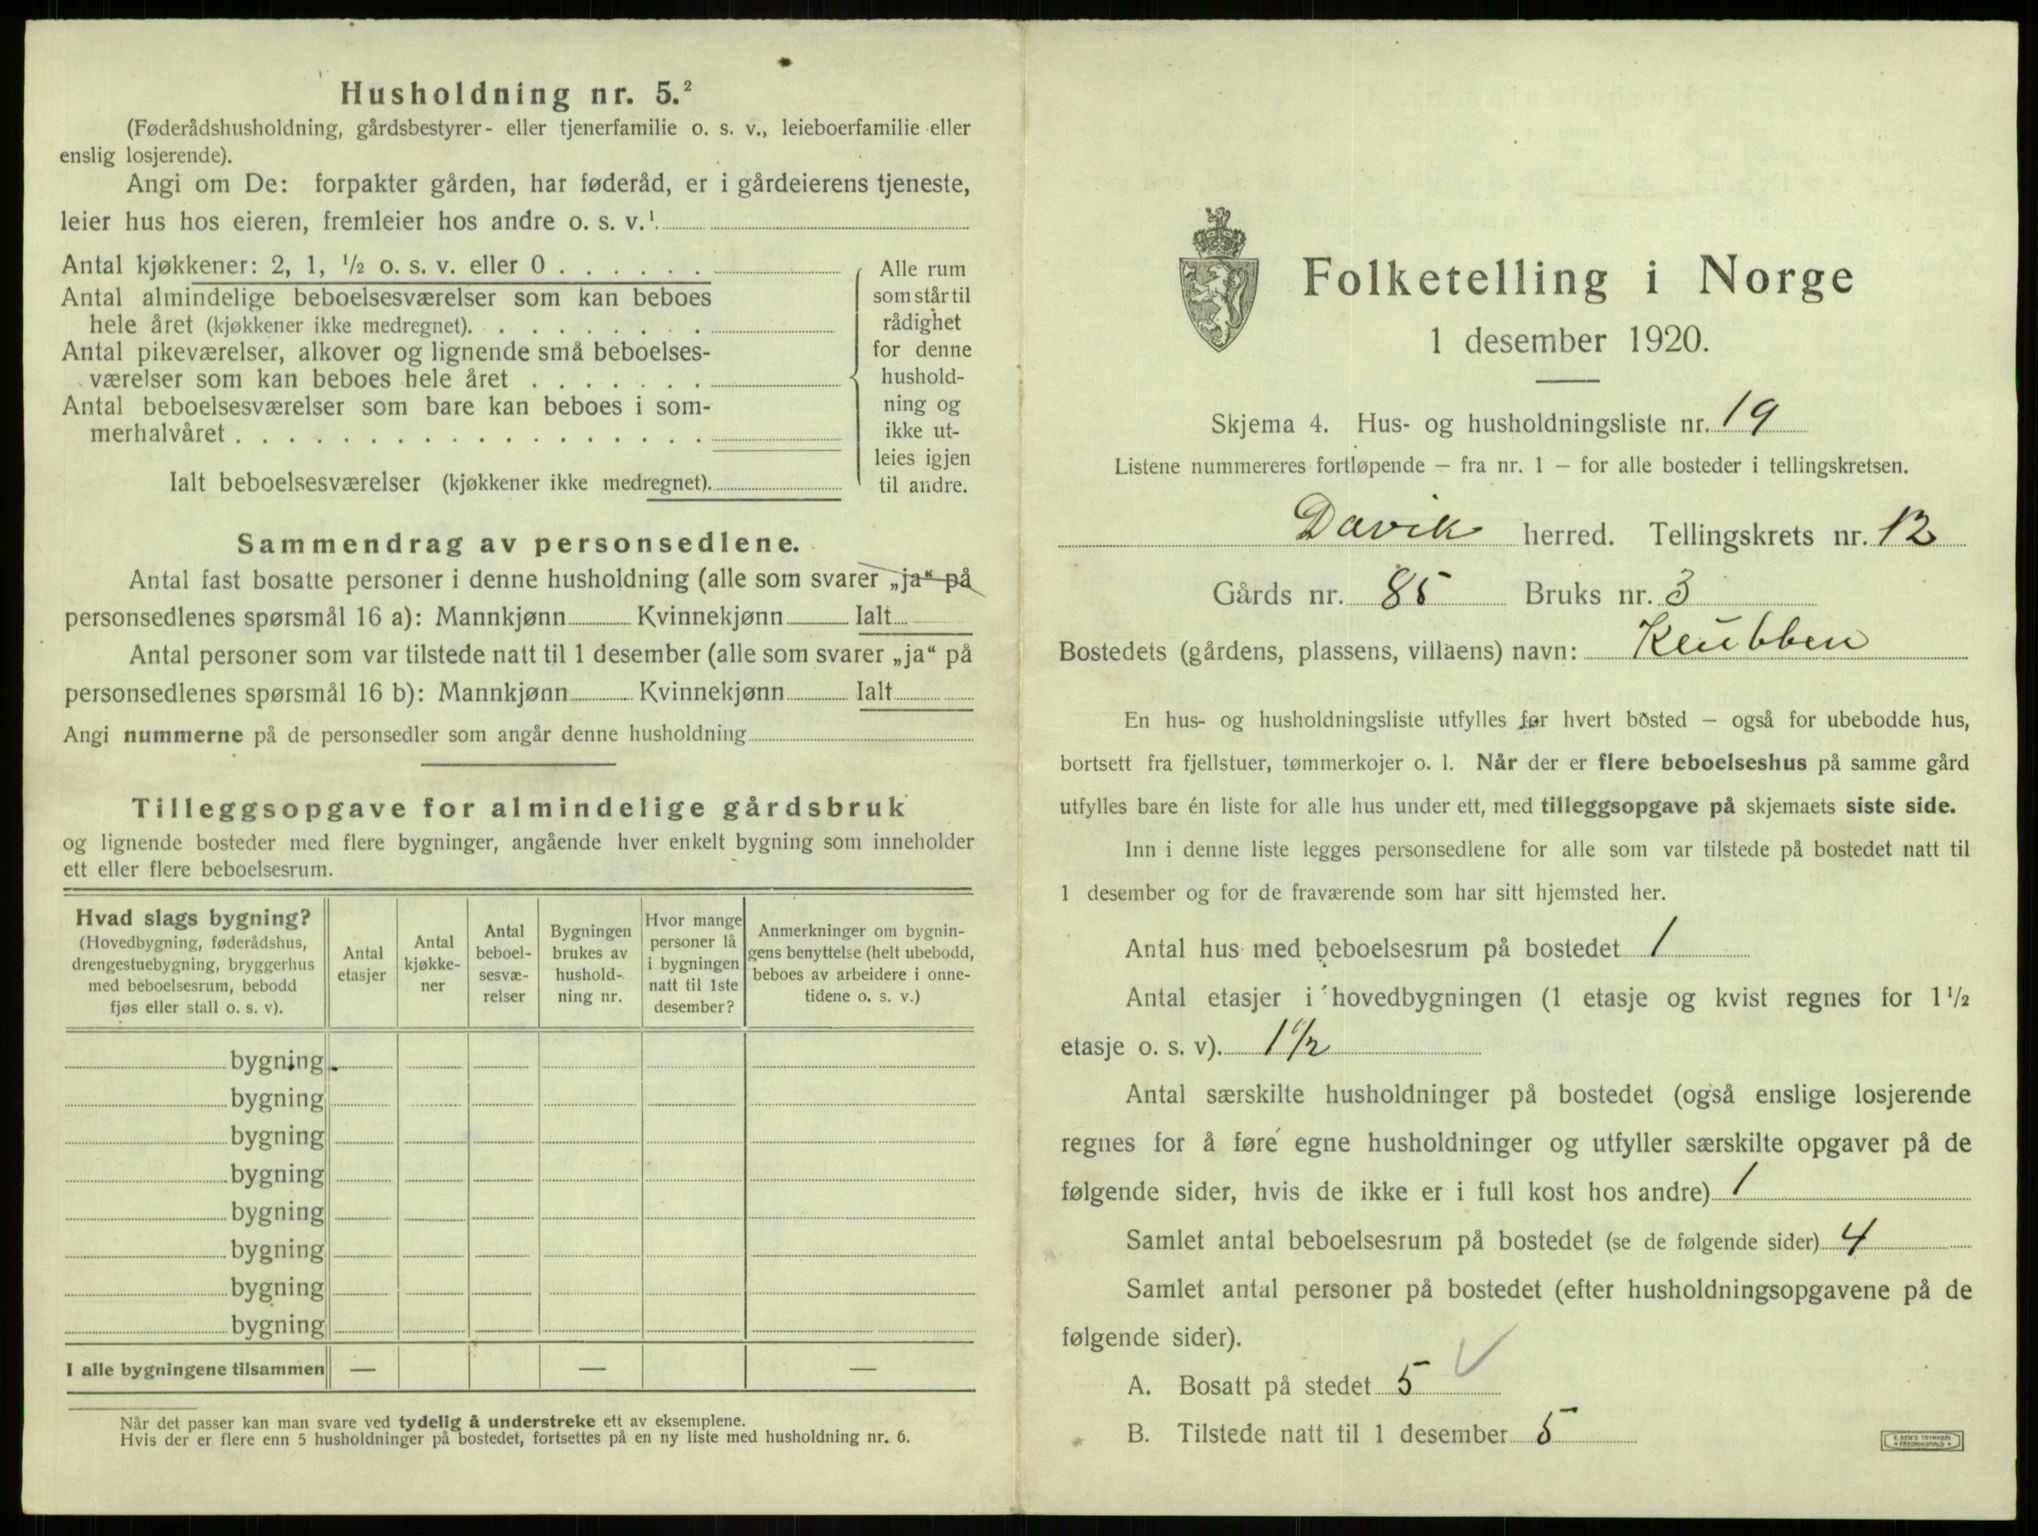 Husholdning nr. 5.²
(Føderådshusholdning, gårdsbestyrer- eller tjenerfamilie o. s. v., leieboerfamilie eller
enslig losjerende).
Angi om De: forpakter gården, har føderåd, er i gårdeierens tjeneste,
leier hus hos eieren, fremleier hos andre o. s. v.¹
Antal kjøkkener: 2, 1, ½ o. s. v. eller 0 . . . . . .
Antal almindelige beboelsesværelser som kan beboes
hele året (kjøkkener ikke medregnet). . . . . . . . .
Antal pikeværelser, alkover og lignende små beboelses-
værelser som kan beboes hele året . . . . . . .
Antal beboelsesværelser som bare kan beboes i som-
merhalvåret . . . . . . . . . . . . . . . . . .
Ialt beboelsesværelser (kjøkkener ikke medregnet).
Alle rum
som står til
rådighet
for denne
hushold-
ning og
ikke ut-
leies igjen
til andre.
Sammendrag av personsedlene.
Antal fast bosatte personer i denne husholdning (alle som svarer „ja“ på
personsedlenes spørsmål 16 a): Mannkjønn Kvinnekjønn Ialt
Antal personer som var tilstede natt til 1 desember (alle som svarer „ja“ på
personsedlenes spørsmål 16 b): Mannkjønn Kvinnekjønn Ialt
Angi nummerne på de personsedler som angår denne husholdning
Tilleggsopgave for almindelige gårdsbruk
og lignende bosteder med flere bygninger, angående hver enkelt bygning som inneholder
ett eller flere beboelsesrum.
Hvad slags bygning?
(Hovedbygning, føderådshus,
drengestuebygning, bryggerhus
med beboelsesrum, bebodd
fjøs eller stall o. s. v).
Antal
etasjer
Antal
kjøkke-
ner
Antal
beboel-
sesvæ-
relser
Bygningen
brukes av
hushold-
ning nr.
Hvor mange
personer lå
i bygningen
natt til 1ste
desember?
Anmerkninger om bygnin-
gens benyttelse (helt ubebodd,
beboes av arbeidere i onne-
tidene o. s. v.)
bygning
bygning
bygning
bygning
bygning
bygning
bygning
bygning
I alle bygningene tilsammen — — —
Når det passer kan man svare ved tydelig å understreke ett av eksemplene.
Hvis der er flere enn 5 husholdninger på bostedet, fortsettes på en ny liste med husholdning nr. 6.
Folketelling i Norge
1 desember 1920.
Skjema 4. Hus- og husholdningsliste nr. 19
Listene nummereres fortløpende – fra nr. 1 – for alle bosteder i tellingskretsen.
Davik herred. Tellingskrets nr. 12
Gårds nr. 85 Bruks nr. 3
Bostedets (gårdens, plassens, villaens) navn: Klubben
En hus- og husholdningsliste utfylles for hvert bosted – også for ubebodde hus,
bortsett fra fjellstuer, tømmerkojer o. l. Når der er flere beboelseshus på samme gård
utfylles bare én liste for alle hus under ett, med tilleggsopgave på skjemaets siste side.
Inn i denne liste legges personsedlene for alle som var tilstede på bostedet natt til
1 desember og for de fraværende som har sitt hjemsted her.
Antal hus med beboelsesrum på bostedet 1
Antal etasjer i hovedbygningen (1 etasje og kvist regnes for 1½
etasje o. s. v). 1½
Antal særskilte husholdninger på bostedet (også enslige losjerende
regnes for å føre egne husholdninger og utfyller særskilte opgaver på de
følgende sider, hvis de ikke er i full kost hos andre) 1
Samlet antal beboelsesrum på bostedet (se de følgende sider) 4
Samlet antal personer på bostedet (efter husholdningsopgavene på de
følgende sider).
A. Bosatt på stedet 5
B. Tilstede natt til 1 desember 5